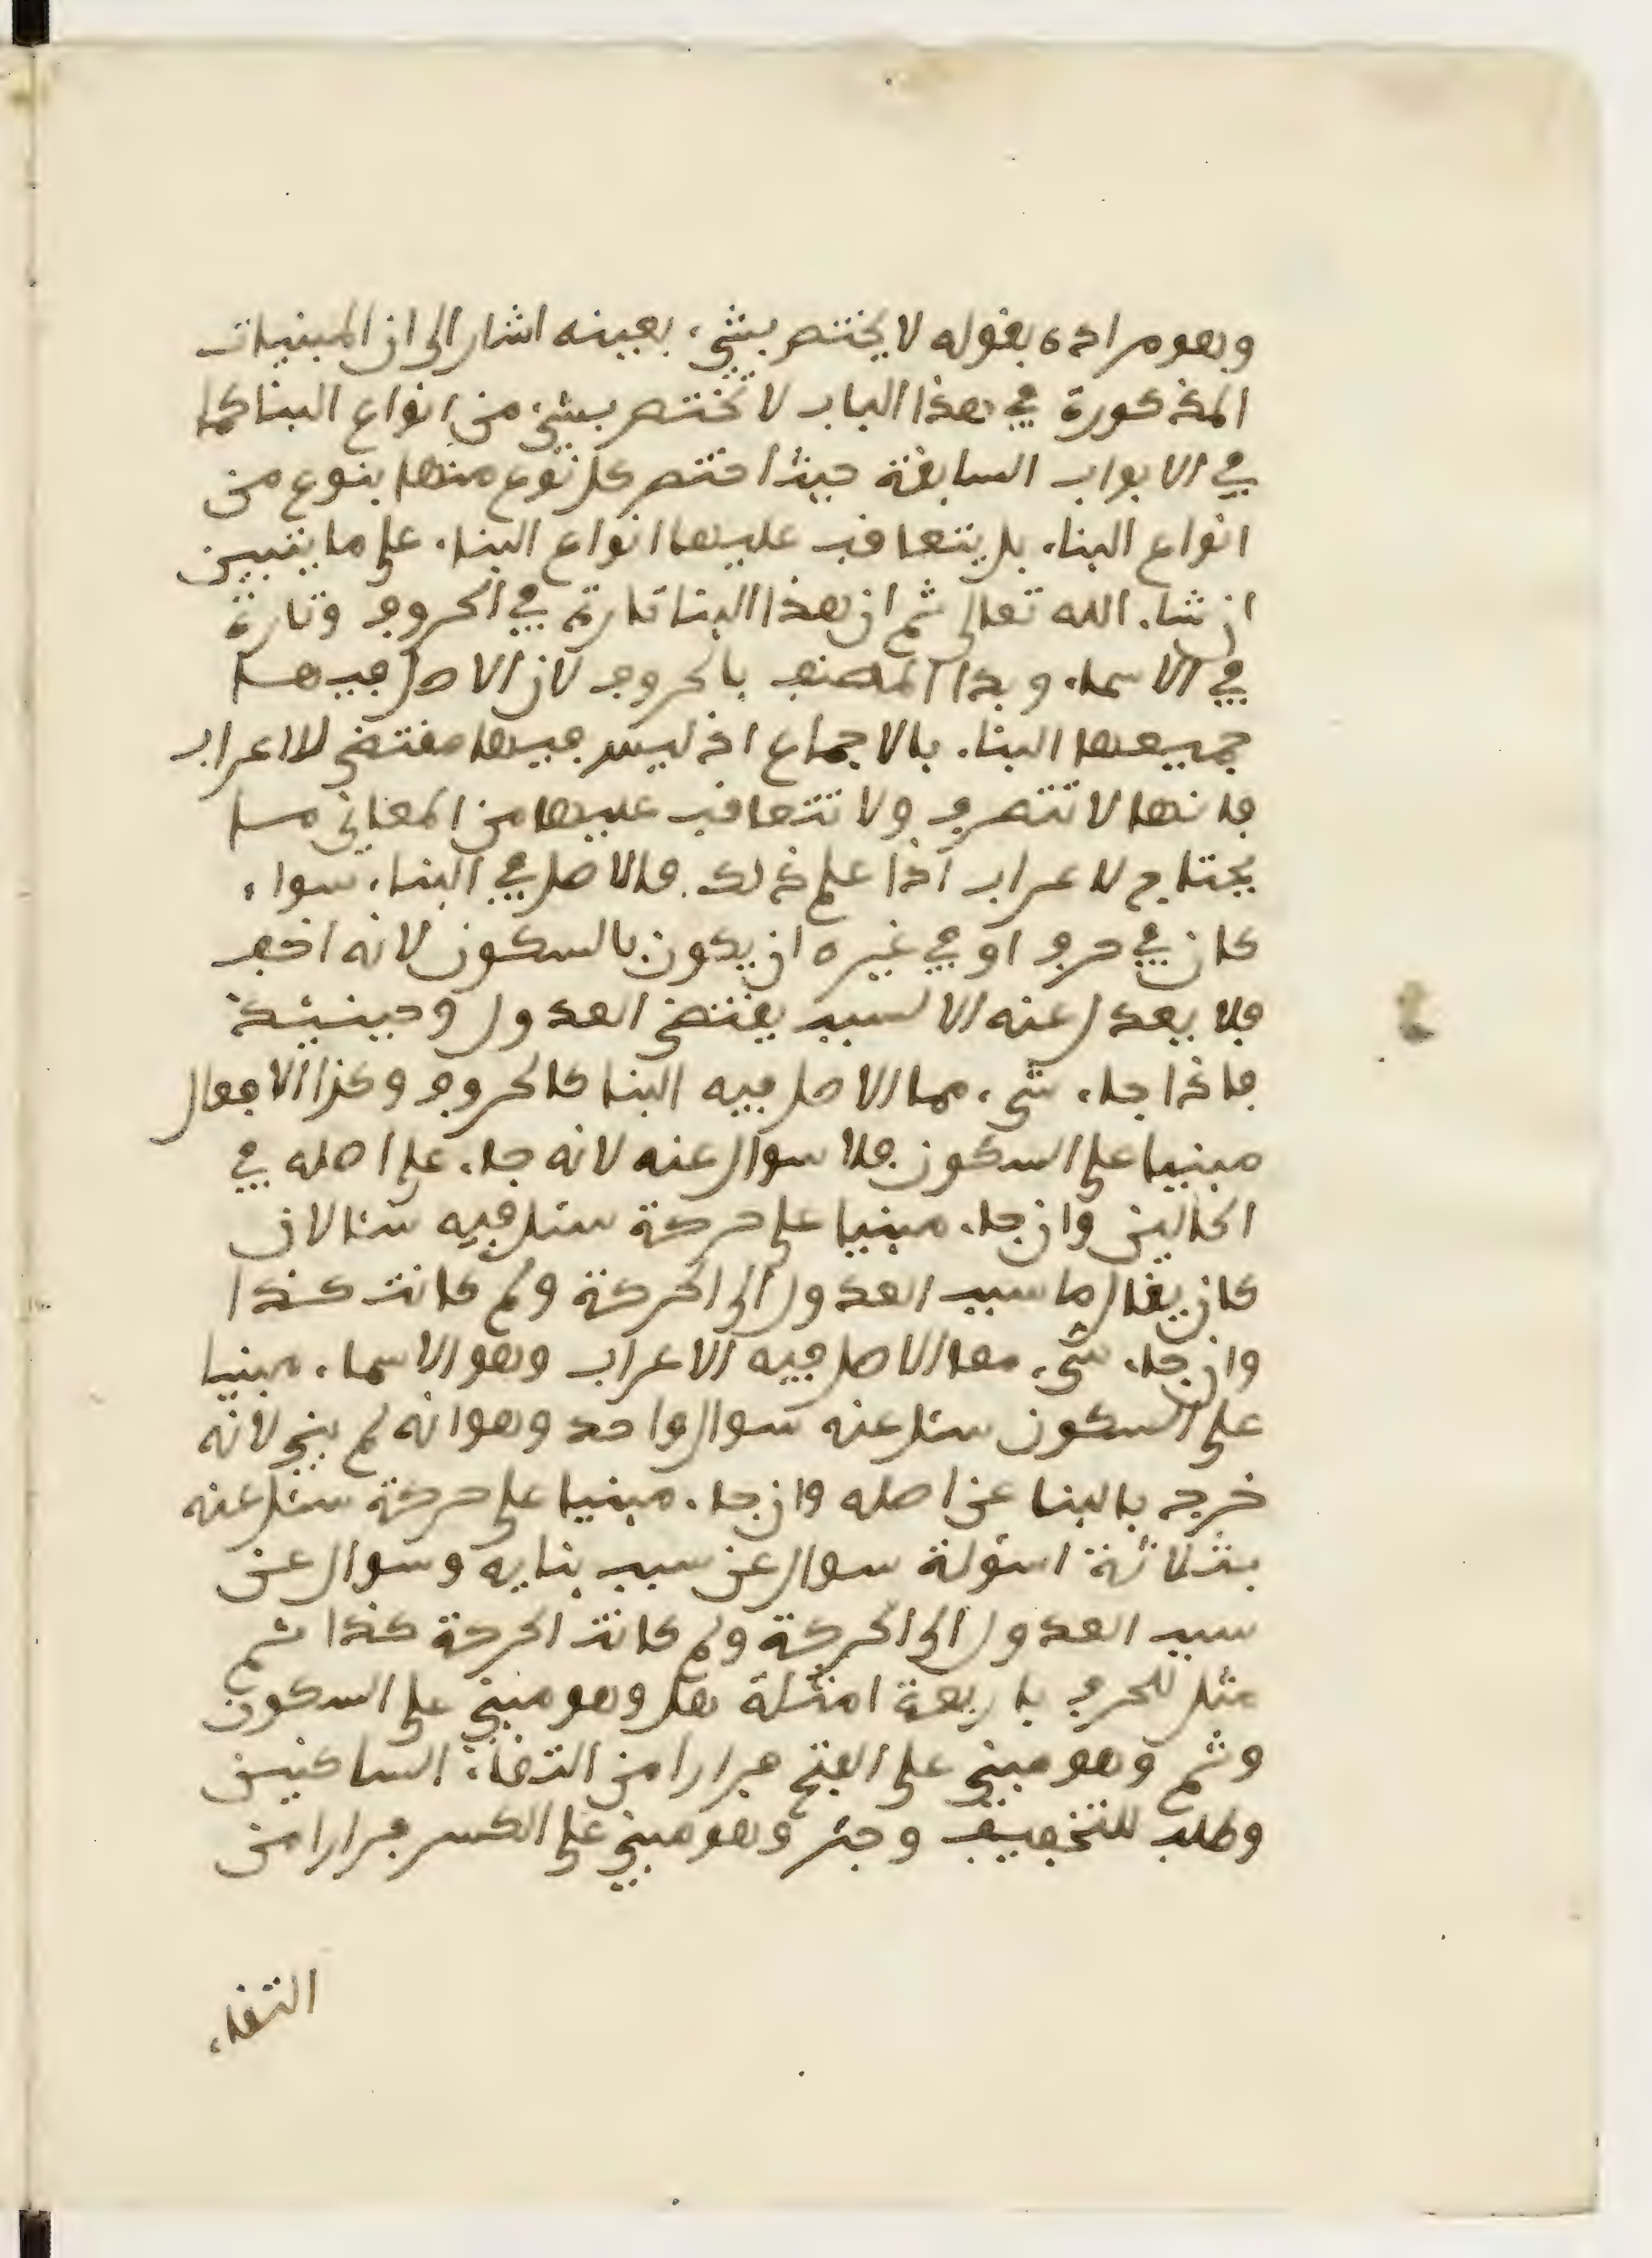 وهو مراده بقوله لا يختص بشيء بعينه اشار الى ان المبنيات
المذكورة في هذا الباب لا تختص بشيء من انواع البنا كما
في الابواب السابقة حيث اختص كل نوع منها بنوع من
انواع البناء بل يتعاقب عليها انواع البناء على ما يتبين
ان شاء الله تعالى ثم ان هذا البنا تارة في الحروف وتارة
في الاسماء وبدا المصنف بالحروف لان الاصل فيها
جميعها البناء بالاجماع اذ ليس فيها مقتضى للاعراب
فانها لا تتصرف ولا تتعاقب عليها من المعاني ما
يحتاج للاعراب اذا علم ذلك فالاصل في البناء سواء
كان في حرف او في غيره ان يكون بالسكون لانه اخف
فلا يعدل عنه الا لسبب يقتضى العدول وحينيئذ
فاذا جاء شيء مما الاصل فيه البنا كالحروف وكذا الافعال
مبنيا على السكون فلا سوال عنه لانه جاء على اصله في
الحالين وان جاء مبنيا على حركة سئل فيه سئالان
كان يقال ما سبب العدول الى الحركة ولم كانت كذا
وان جاء شيء مما الاصل فيه الاعراب وهو الاسماء مبنيا
على السكون سئل عنه سوال واحد وهو انه لم بني لانه
خرج بالبنا عن اصله وان جاء مبنيا على حركة سئل عنه
بثلاثة اسئولة سوال عن سبب بنايه وسوال عن
سبب العدول الى الحركة ولم كانت الحركة كذا ثم
مثل للحرف باربعة امثلة هل وهو مبني على السكون
وثم وهو مبني على الفتح فرارا من التقاء الساكنين
وطلب للتخفيف وجير وهو مبني على الكسر فرارا من
التقاء